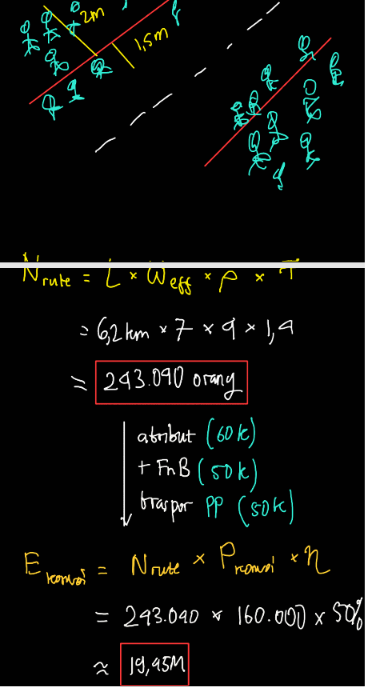 2m
1,5m
N rute = L × Weff × ρ × T
= 6,2 km × 7 × 4 × 1,4
= 243.040 orang
atribut (60k)
+ FnB (50k)
traspor PP (50k)
E konvoi = N rute × P konvoi × η
= 243.040 × 160.000 × 50%
≈ 19,45M